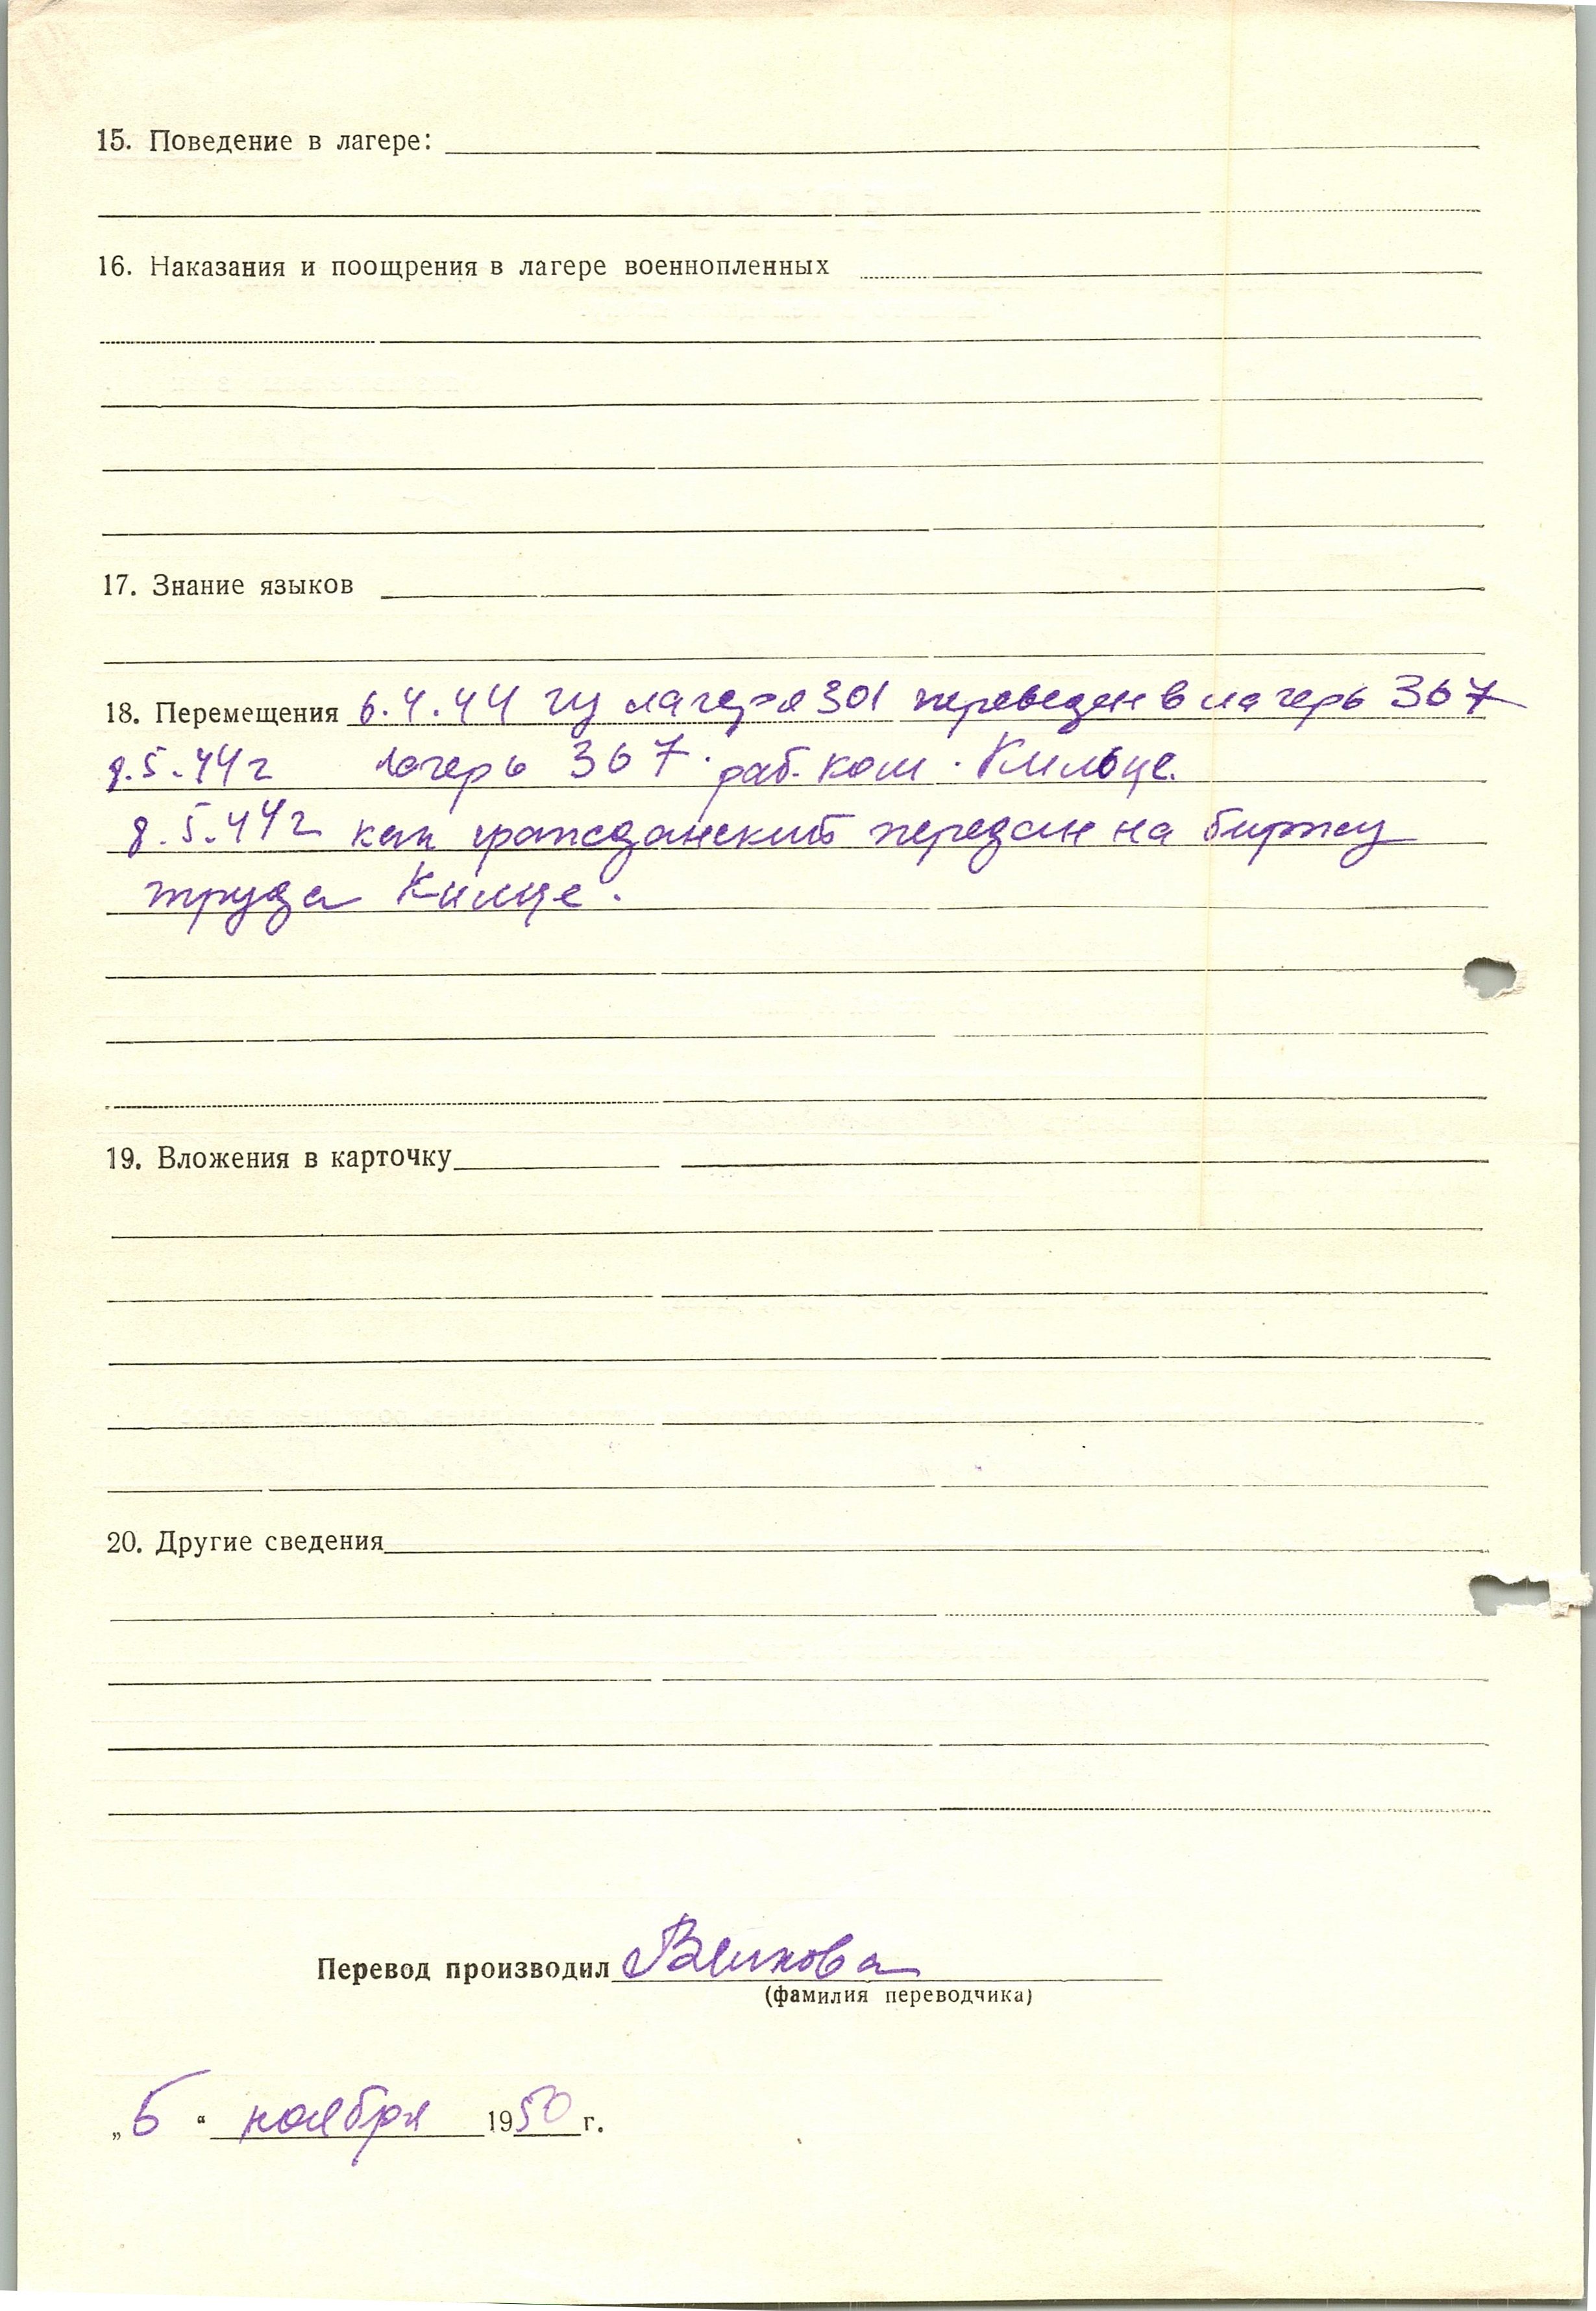 15. Поведение в лагере:
16. Наказания и поощрения в лагере военнопленных
17. Знание языков
18. Перемещения 6.4.44 из лагеря 301 переведен в лагерь 367
8.5.44 г лагерь 367 раб. ком. Кильце.
8.5.44 г как гражданский передан на биржу
труда Кильце.
19. Вложения в карточку
20. Другие сведения
Перевод производил
(фамилия переводчика)
„6“ ноября 1950 г.